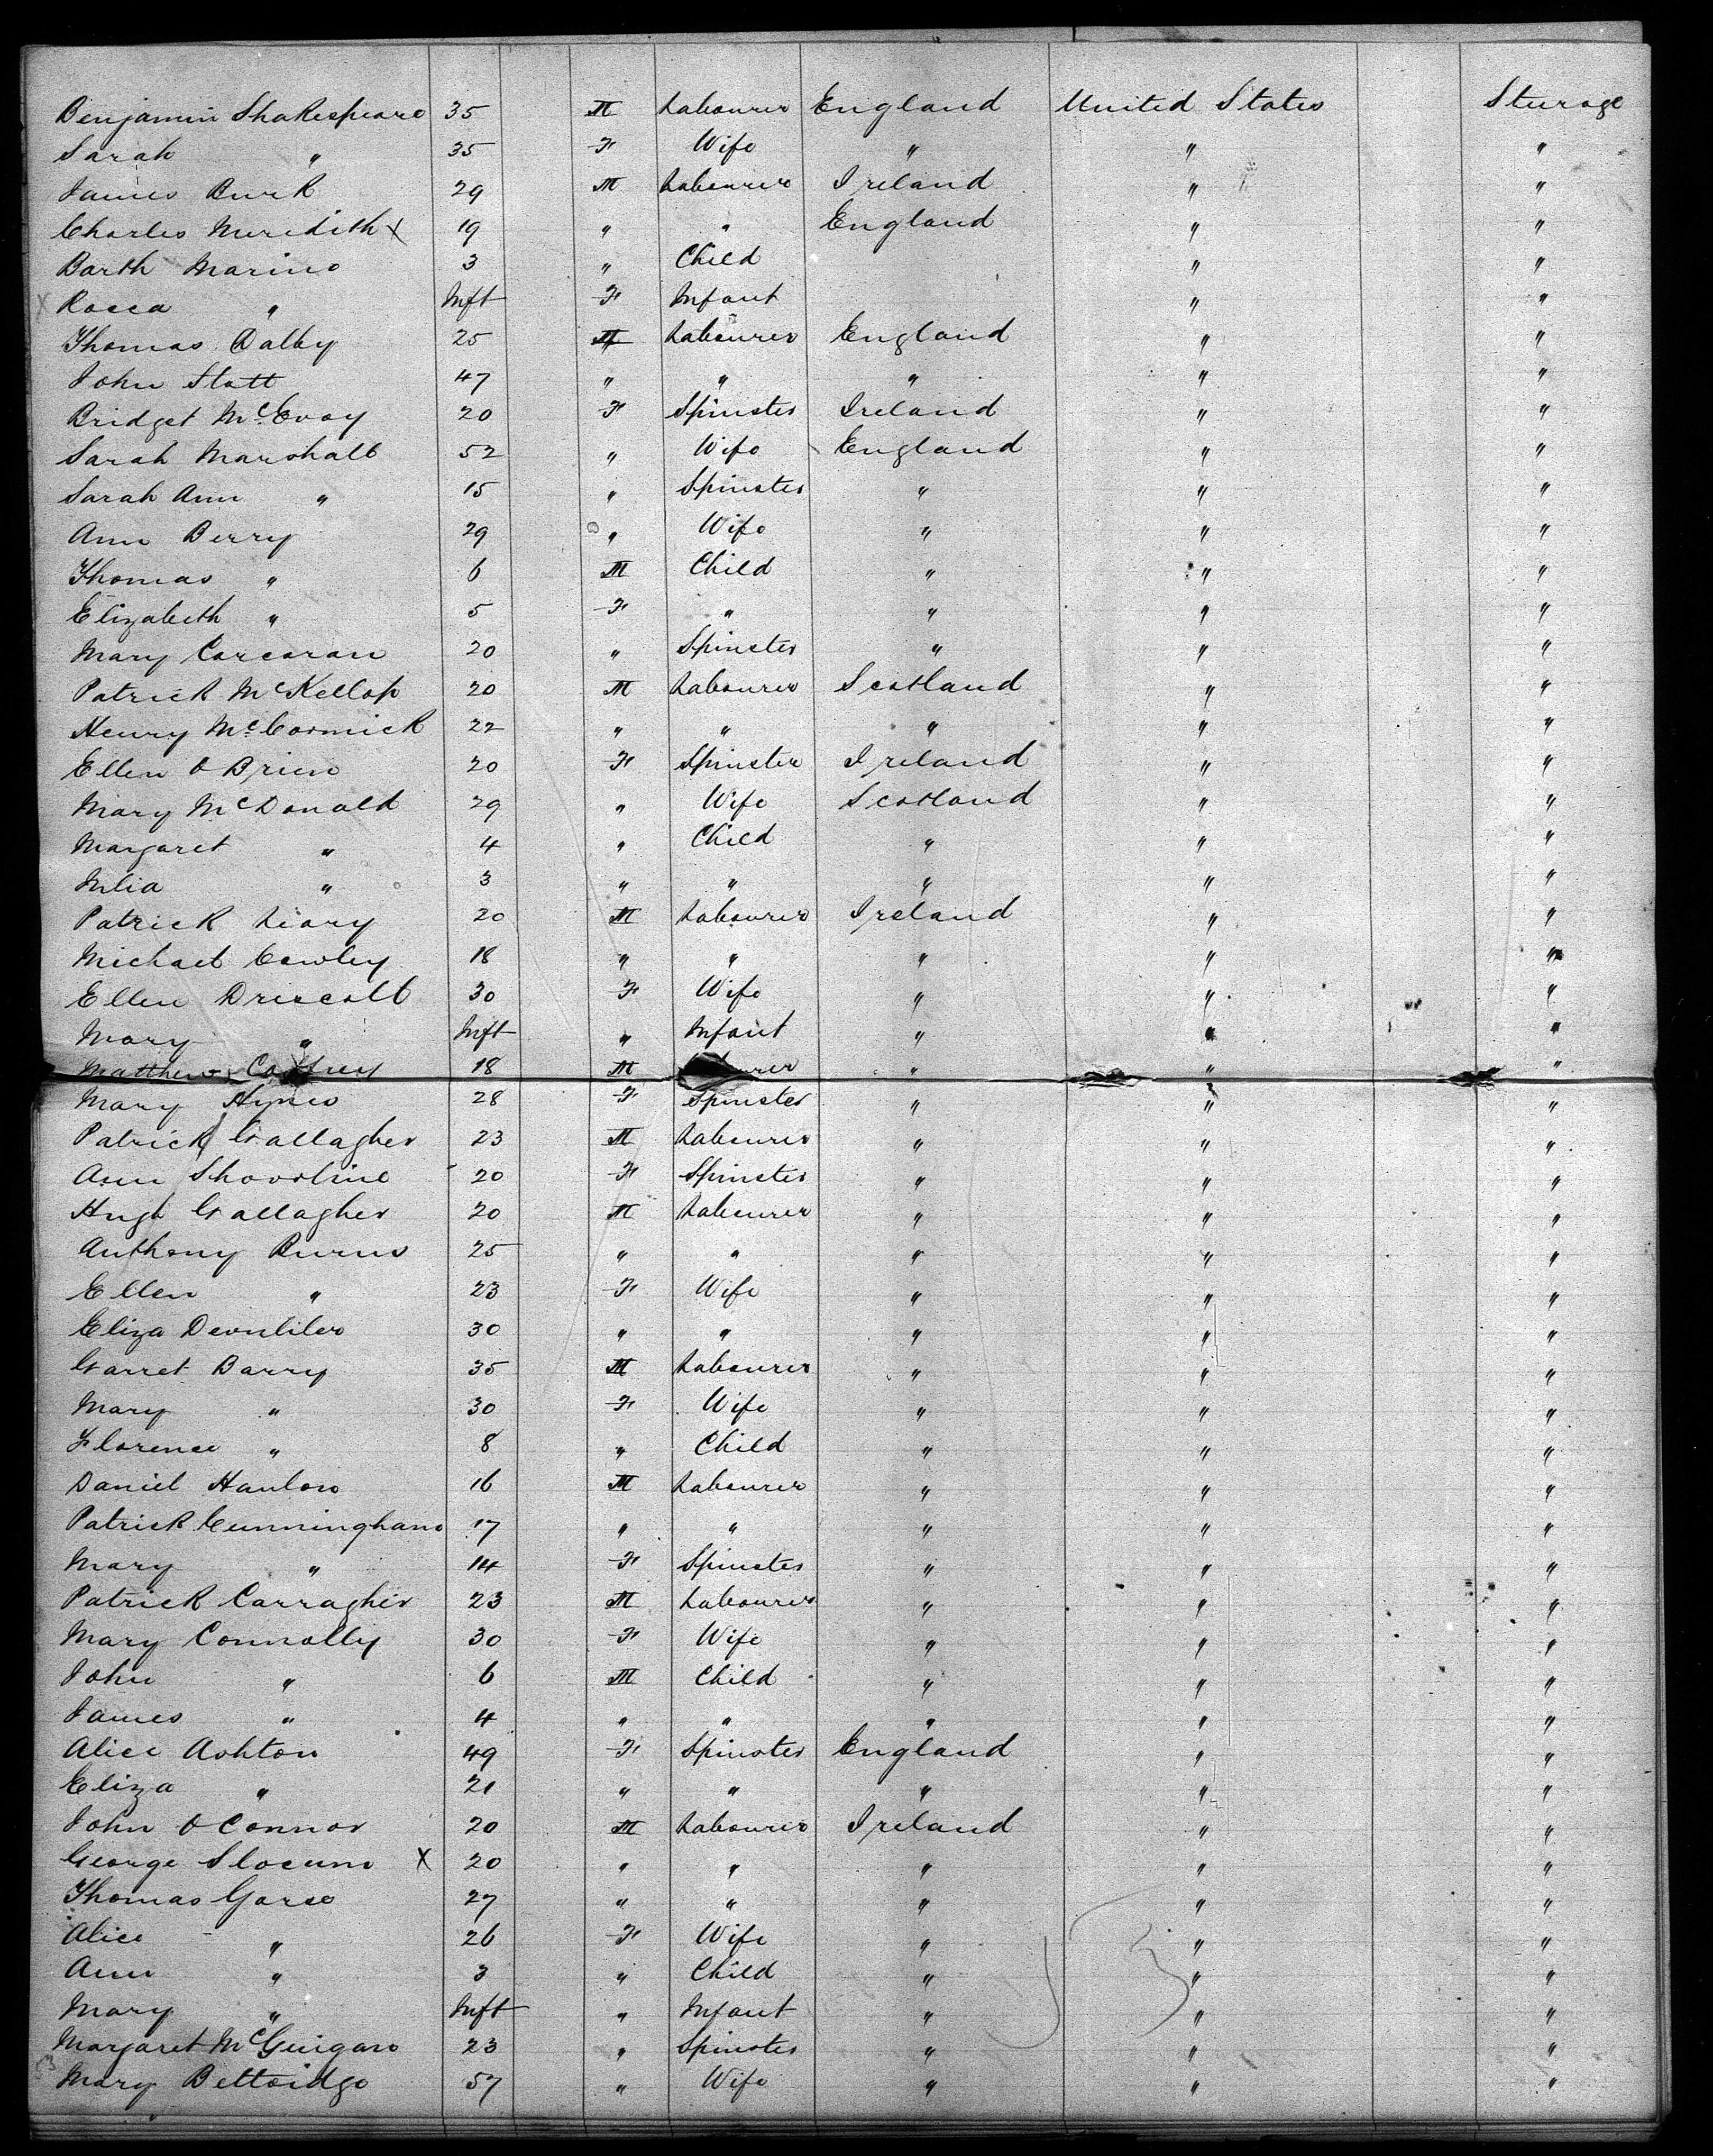 Benjamin Shakespeare 35 M Labourer England United States Steerage
Sarah " 35 F Wife " " "
James Burk 29 M Labourer Ireland " "
Charles Meredith X 19 " " England " "
Barth Marino 3 " Child " "
X Rocca " Inft F Infant " "
Thomas Dalby 25 M Labourer England " "
John Statt 47 " " " " "
Bridget McEvoy 20 F Spinster Ireland " "
Sarah Marshall 52 " Wife England " "
Sarah Ann " 15 " Spinster " " "
Ann Berry 29 " Wife " " "
Thomas " 6 M Child " " "
Elizabeth " 5 F " " " "
Mary Corcoran 20 " Spinster " " "
Patrick McKellop 20 M Labourer Scotland " "
Henry McCormick 22 " " " " "
Ellen O Brien 20 F Spinster Ireland " "
Mary McDonald 29 " Wife Scotland " "
Margaret " 4 " Child " " "
Julia " 3 " " " " "
Patrick Leary 20 M Labourer Ireland " "
Michael Cowley 18 " " " " "
Ellen Driscoll 30 F Wife " " "
Mary " Inft " Infant " " "
Matthew 18 M " " "
Mary Hynes 28 F Spinster " " "
Patrick Gallagher 23 M Labourer " " "
Ann Shovoline 20 F Spinster " " "
Hugh Gallagher 20 M Labourer " " "
Anthony Burns 25 " " " " "
Ellen " 23 F Wife " " "
Eliza 30 " " " " "
Garret Barry 35 M Labourer " " "
Mary " 30 F Wife " " "
Florence " 8 " Child " " "
Daniel Hanlon 16 M Labourer " " "
Patrick Cunningham 17 " " " " "
Mary " 14 F Spinster " " "
Patrick Carragher 23 M Labourer " " "
Mary Connolly 30 F Wife " " "
John " 6 M Child " " "
James " 4 " " " " "
Alice Ashton 49 F Spinster England " "
Eliza " 21 " " " " "
John O Connor 20 M Labourer Ireland " "
George Slocum X 20 " " " " "
Thomas Garse 27 " " " " "
Alice " 26 F Wife " " "
Ann " 3 " Child " " "
Mary " Inft " Infant " " "
Margaret McGuigan 23 " Spinster " " "
Mary Bettridge 57 " Wife " " "